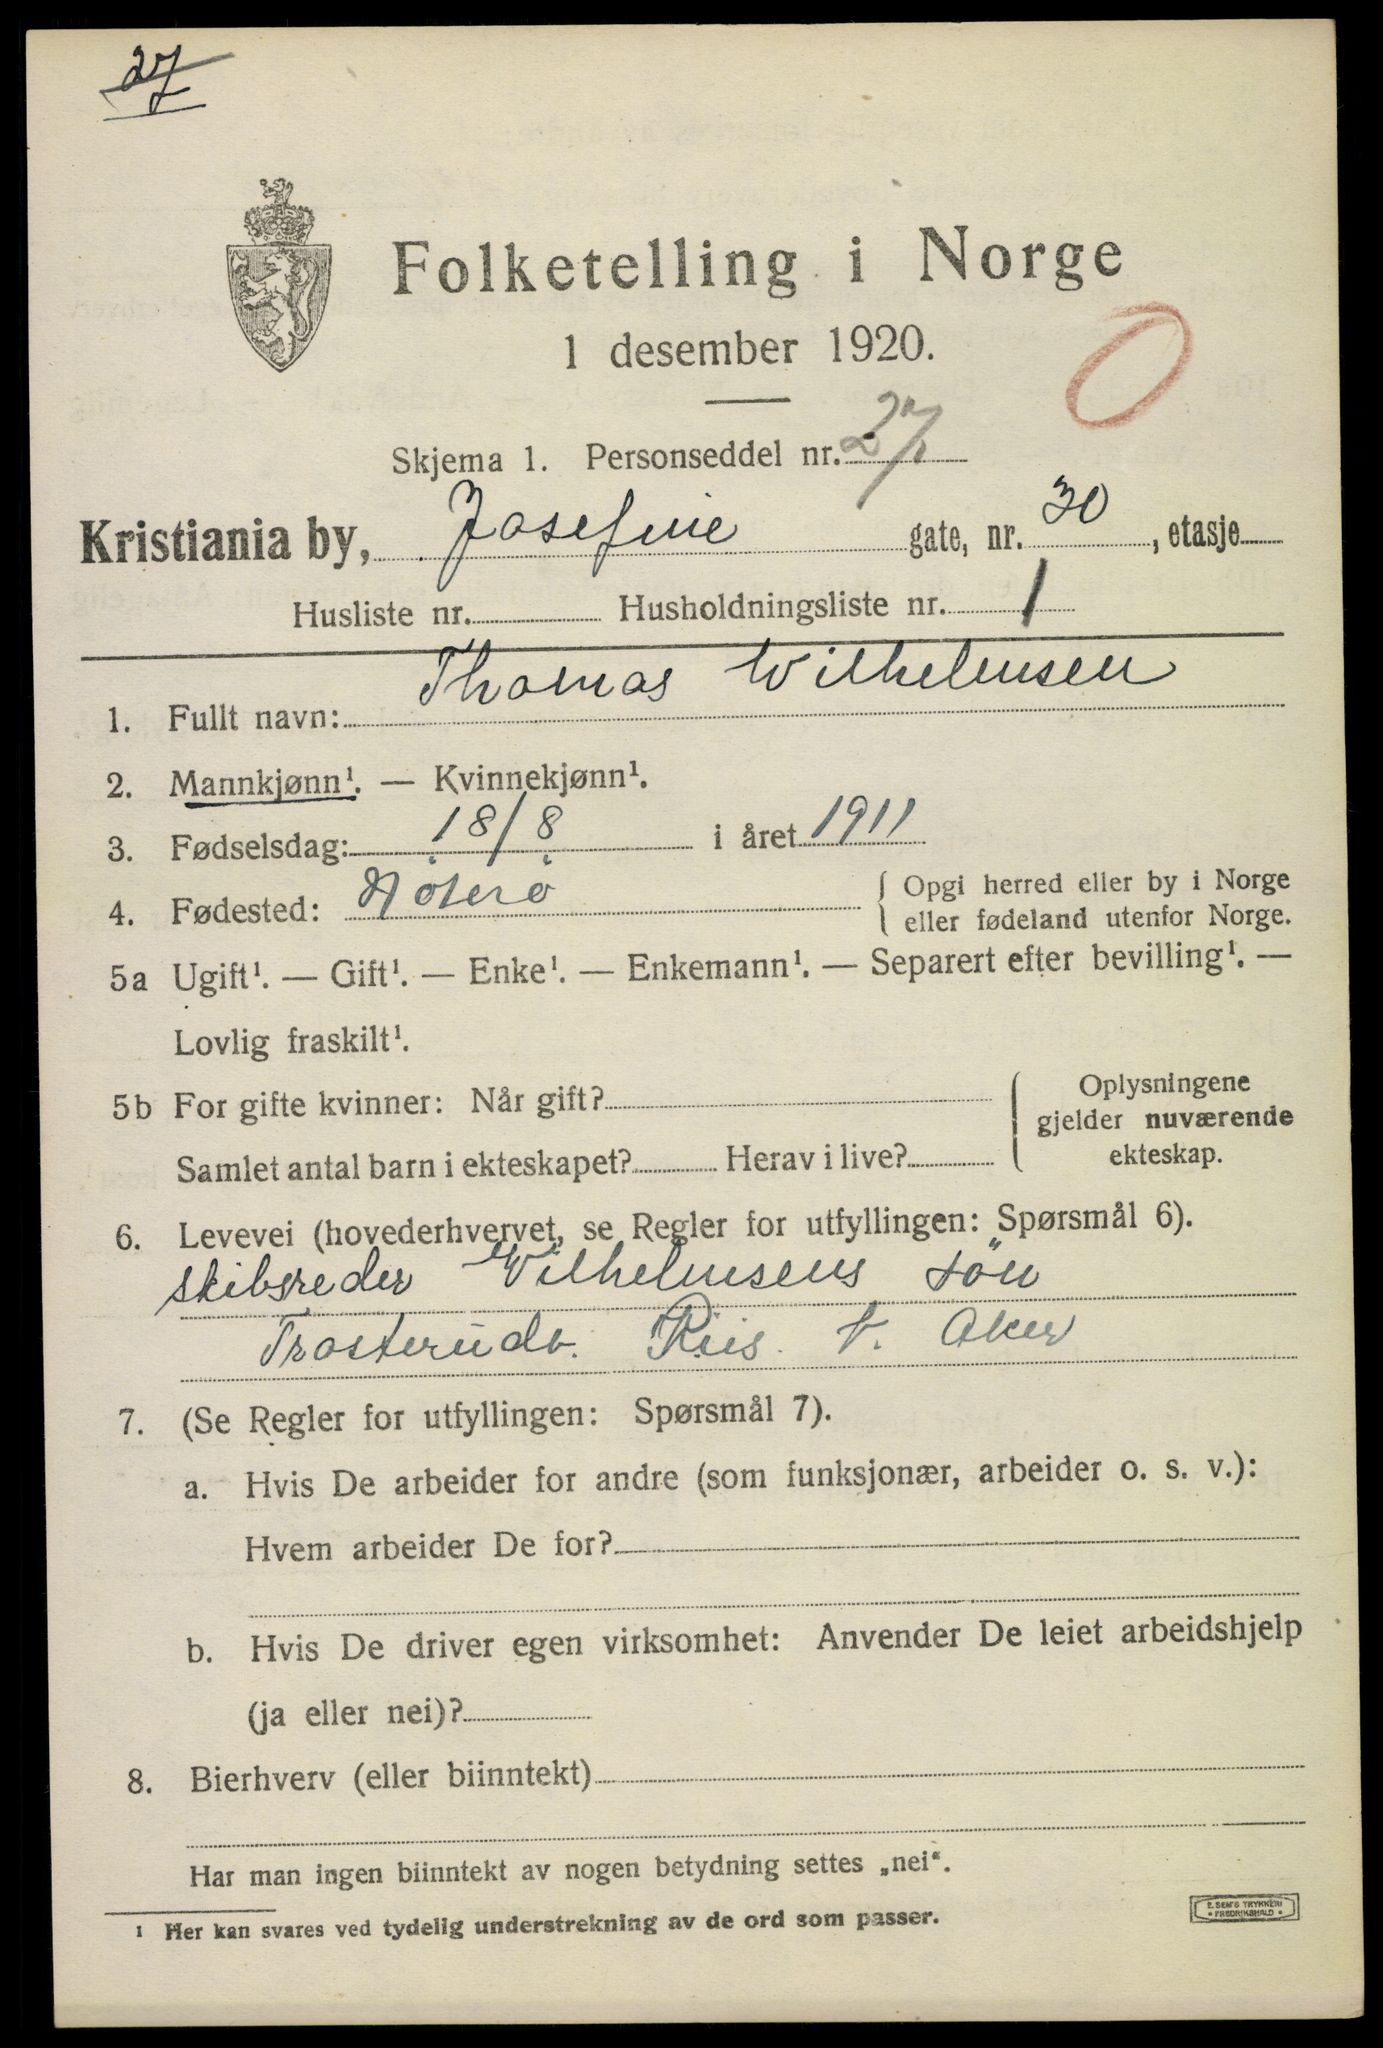 27
Folketelling i Norge
1 desember 1920.
Skjema 1. Personseddel nr. 27
Kristiania by, Josefine gate, nr. 30, etasje
Husliste nr. Husholdningsliste nr. 1
1. Fullt navn: Thomas Wilhelmsen
2. Mannkjønn¹. — Kvinnekjønn¹.
3. Fødselsdag: 18/8 i året 1911
4. Fødested: Nøterø { Opgi herred eller by i Norge
eller fødeland utenfor Norge.
5a Ugift¹. — Gift¹. — Enke¹. — Enkemann¹. — Separert efter bevilling¹. —
Lovlig fraskilt¹.
5b For gifte kvinner: Når gift? { Oplysningene
gjelder nuværende
Samlet antal barn i ekteskapet? Herav i live? ekteskap.
6. Levevei (hovederhvervet, se Regler for utfyllingen: Spørsmål 6).
skibsreder Wilhelmsens sön
Trosterudv. Riis. V. Aker
7. (Se Regler for utfyllingen: Spørsmål 7).
a. Hvis De arbeider for andre (som funksjonær, arbeider o. s. v.):
Hvem arbeider De for?
b. Hvis De driver egen virksomhet: Anvender De leiet arbeidshjelp
(ja eller nei)?
8. Bierhverv (eller biinntekt)
Har man ingen biinntekt av nogen betydning settes „nei“.
¹ Her kan svares ved tydelig understrekning av de ord som passer.
E. SEM'S TRYKKERI
• FREDRIKSHALD •